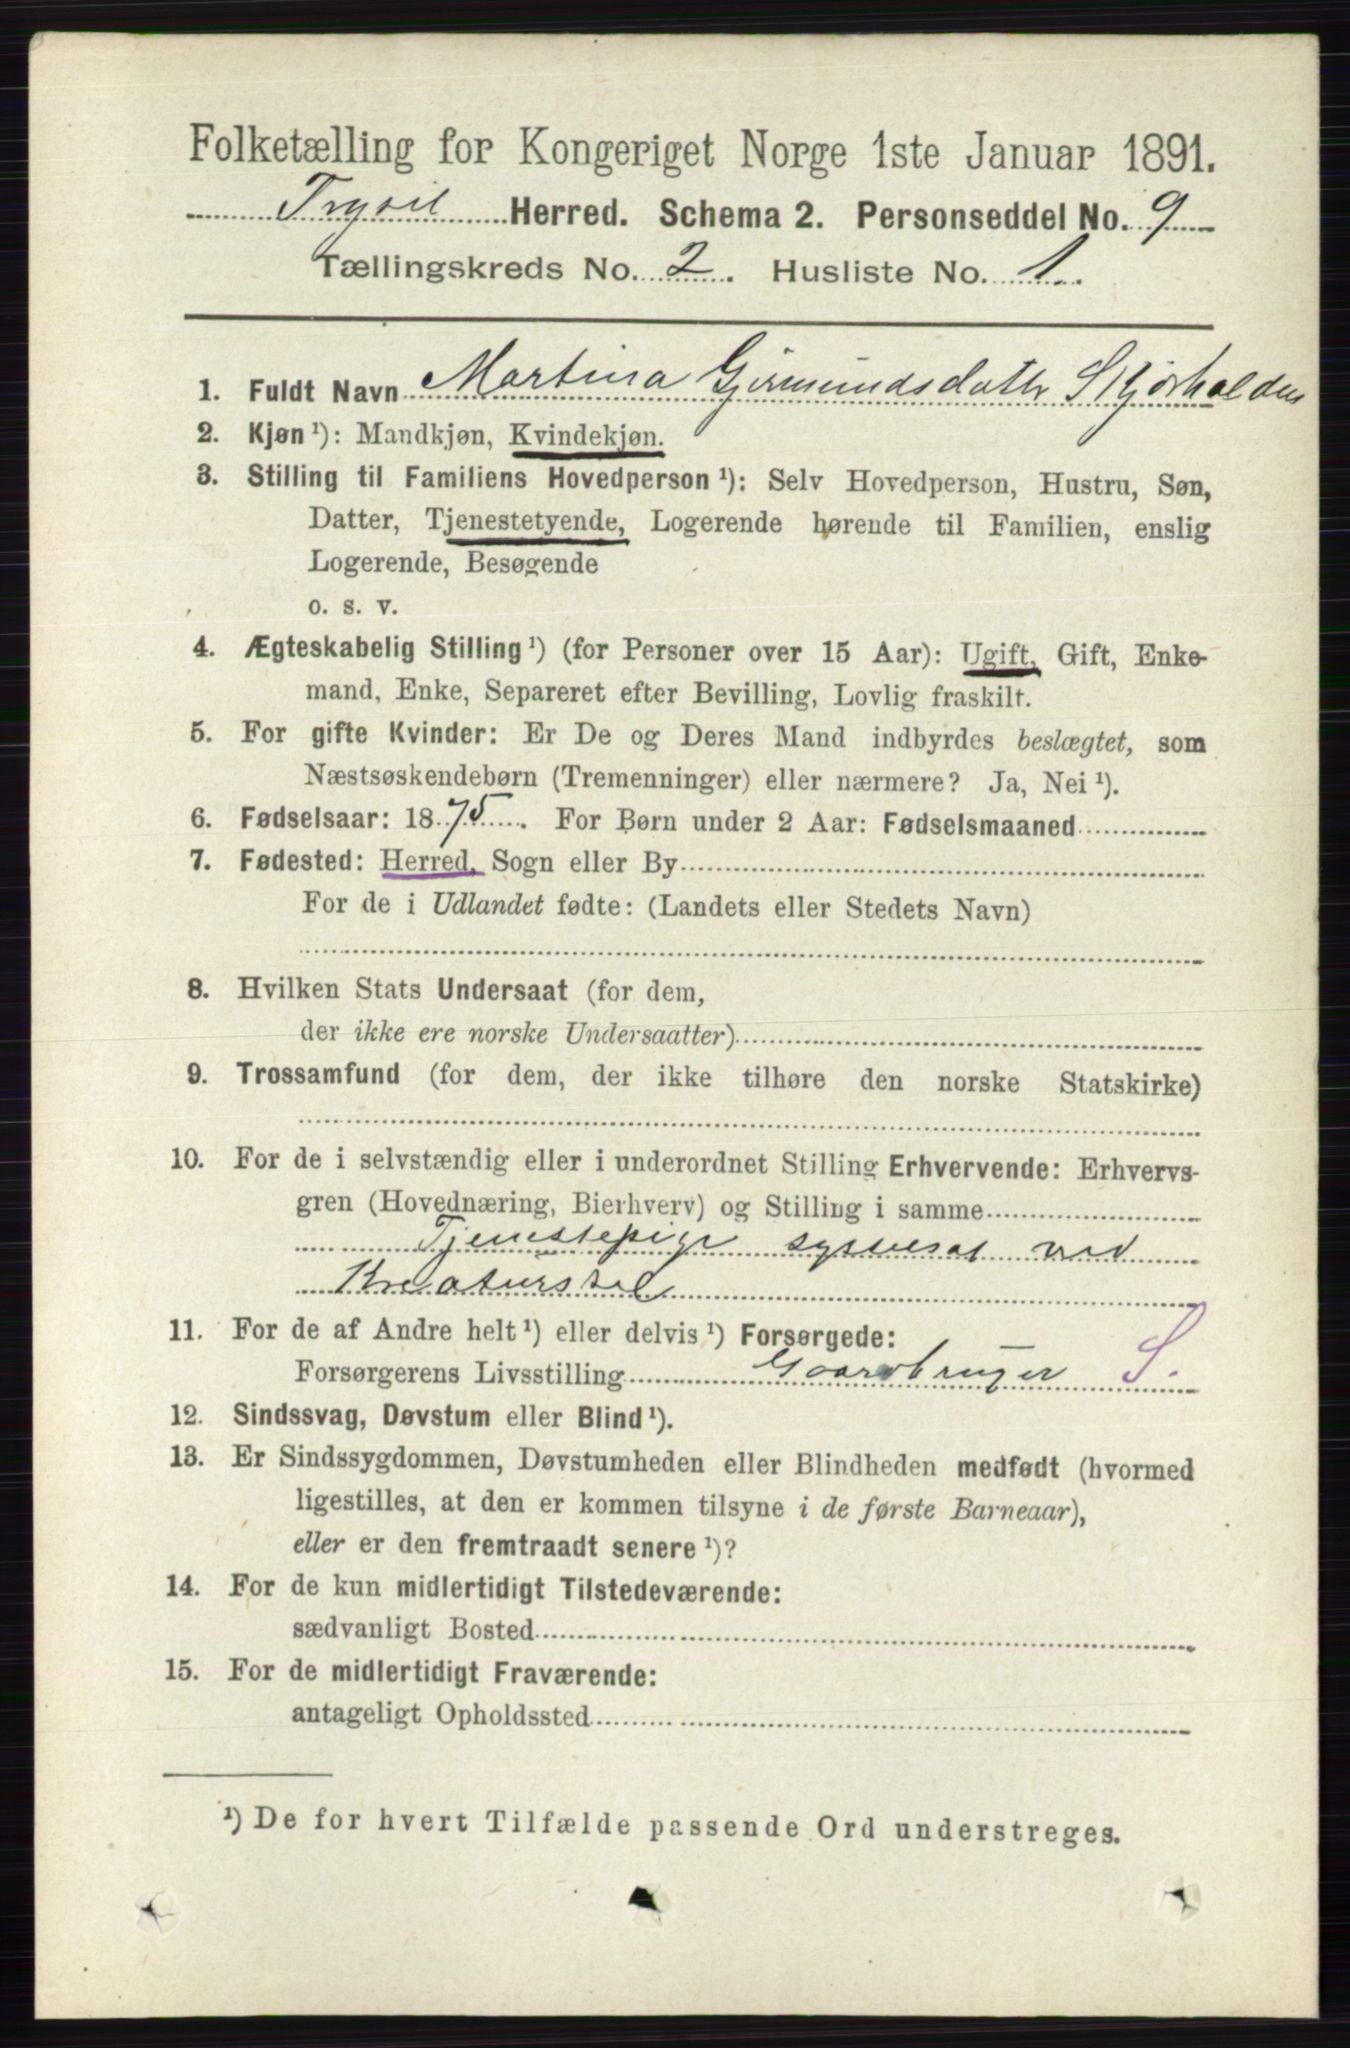 Folketælling for Kongeriget Norge 1ste Januar 1891.
Trysil Herred. Schema 2. Personseddel No. 9
Tællingskreds No. 2. Husliste No. 1.
1. Fuldt Navn Martina Gjermundsdatter Skjærholden
2. Kjøn ¹): Mandkjøn, Kvindekjøn.
3. Stilling til Familiens Hovedperson ¹): Selv Hovedperson, Hustru, Søn,
Datter, Tjenestetyende, Logerende hørende til Familien, enslig
Logerende, Besøgende
o. s. v.
4. Ægteskabelig Stilling ¹) (for Personer over 15 Aar): Ugift, Gift, Enke-
mand, Enke, Separeret efter Bevilling, Lovlig fraskilt.
5. For gifte Kvinder: Er De og Deres Mand indbyrdes beslægtet, som
Næstsøskendebørn (Tremenninger) eller nærmere? Ja, Nei ¹).
6. Fødselsaar: 1875. For Børn under 2 Aar: Fødselsmaaned
7. Fødested: Herred, Sogn eller By
For de i Udlandet fødte: (Landets eller Stedets Navn)
8. Hvilken Stats Undersaat (for dem,
der ikke ere norske Undersaatter)
9. Trossamfund (for dem, der ikke tilhøre den norske Statskirke)
10. For de i selvstændig eller i underordnet Stilling Erhvervende: Erhvervs-
gren (Hovednæring, Bierhverv) og Stilling i samme
Tjenestepige sysselsat ved
Kreaturstel
11. For de af Andre helt ¹) eller delvis ¹) Forsørgede:
Forsørgerens Livsstilling Gaardbruger S.
12. Sindssvag, Døvstum eller Blind ¹).
13. Er Sindssygdommen, Døvstumheden eller Blindheden medfødt (hvormed
ligestilles, at den er kommen tilsyne i de første Barneaar),
eller er den fremtraadt senere ¹)?
14. For de kun midlertidigt Tilstedeværende:
sædvanligt Bosted
15. For de midlertidigt Fraværende:
antageligt Opholdssted
¹) De for hvert Tilfælde passende Ord understreges.